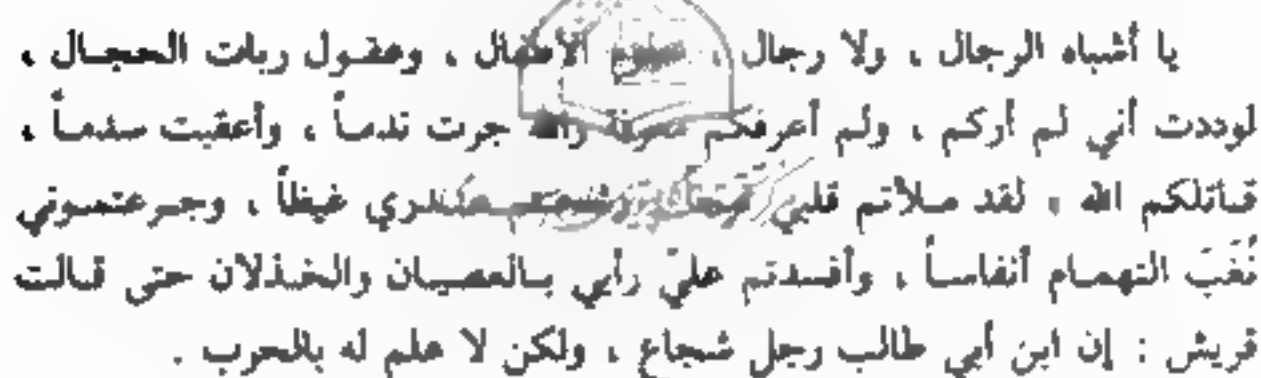 يا أشباه الرجال ، ولا رجال ، حلوم الأطفال ، وعقول ربات الحجال ،
لوددت أني لم أركم ، ولم أعرفكم معرفة والله جرت ندماً ، وأعقبت سدماً ،
قاتلكم الله ، لقد ملأتم قلبي قيحاً وشحنتم صدري غيظاً ، وجرعتموني
نُغَبَ التهمام أنفاساً ، وأفسدتم عليّ رأيي بالعصيان والخذلان حتى قالت
قريش : إن ابن أبي طالب رجل شجاع ، ولكن لا علم له بالحرب .